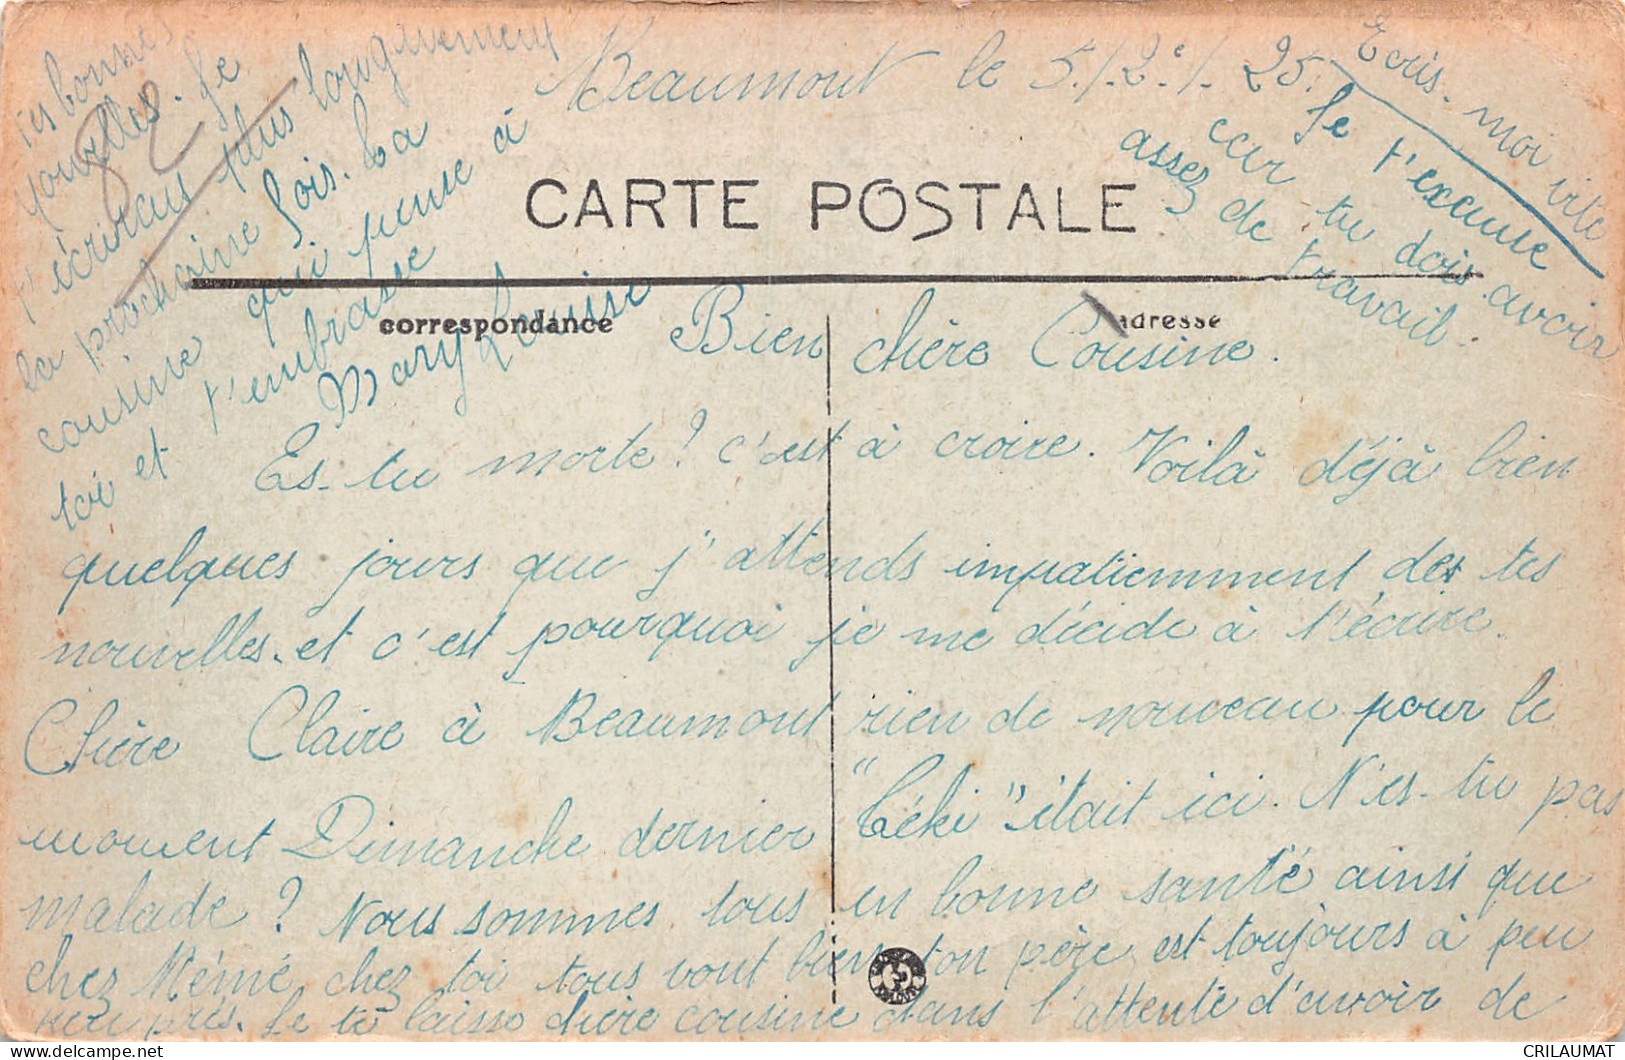 Beaumont le 5/2e/25.
CARTE POSTALE
correspondance
adresse
Bien chère Cousine.
Es-tu morte? c'est à croire. Voilà déjà bien
quelques jours que j'attends impatiemment des tes
nouvelles. et c'est pourquoi je me décide à t'écrire.
Chère Claire à Beaumont rien de nouveau pour le
moment Dimanche dernier "Kéki" était ici. N'es-tu pas
malade? Nous sommes tous en bonne santé ainsi que
chez Mémé, chez toi tous vont bien ton père est toujours à peu
près. Je te laisse chère cousine dans l'attente d'avoir de
tes bonnes
nouvelles. Je
t'écrirais plus longuement
la prochaine fois. Ta
cousine qui pense à
toi et t'embrasse
Mary Louise
Ecris-moi vite
Je t'excuse
car tu dois avoir
assez de travail.
82
CRILAUMAT